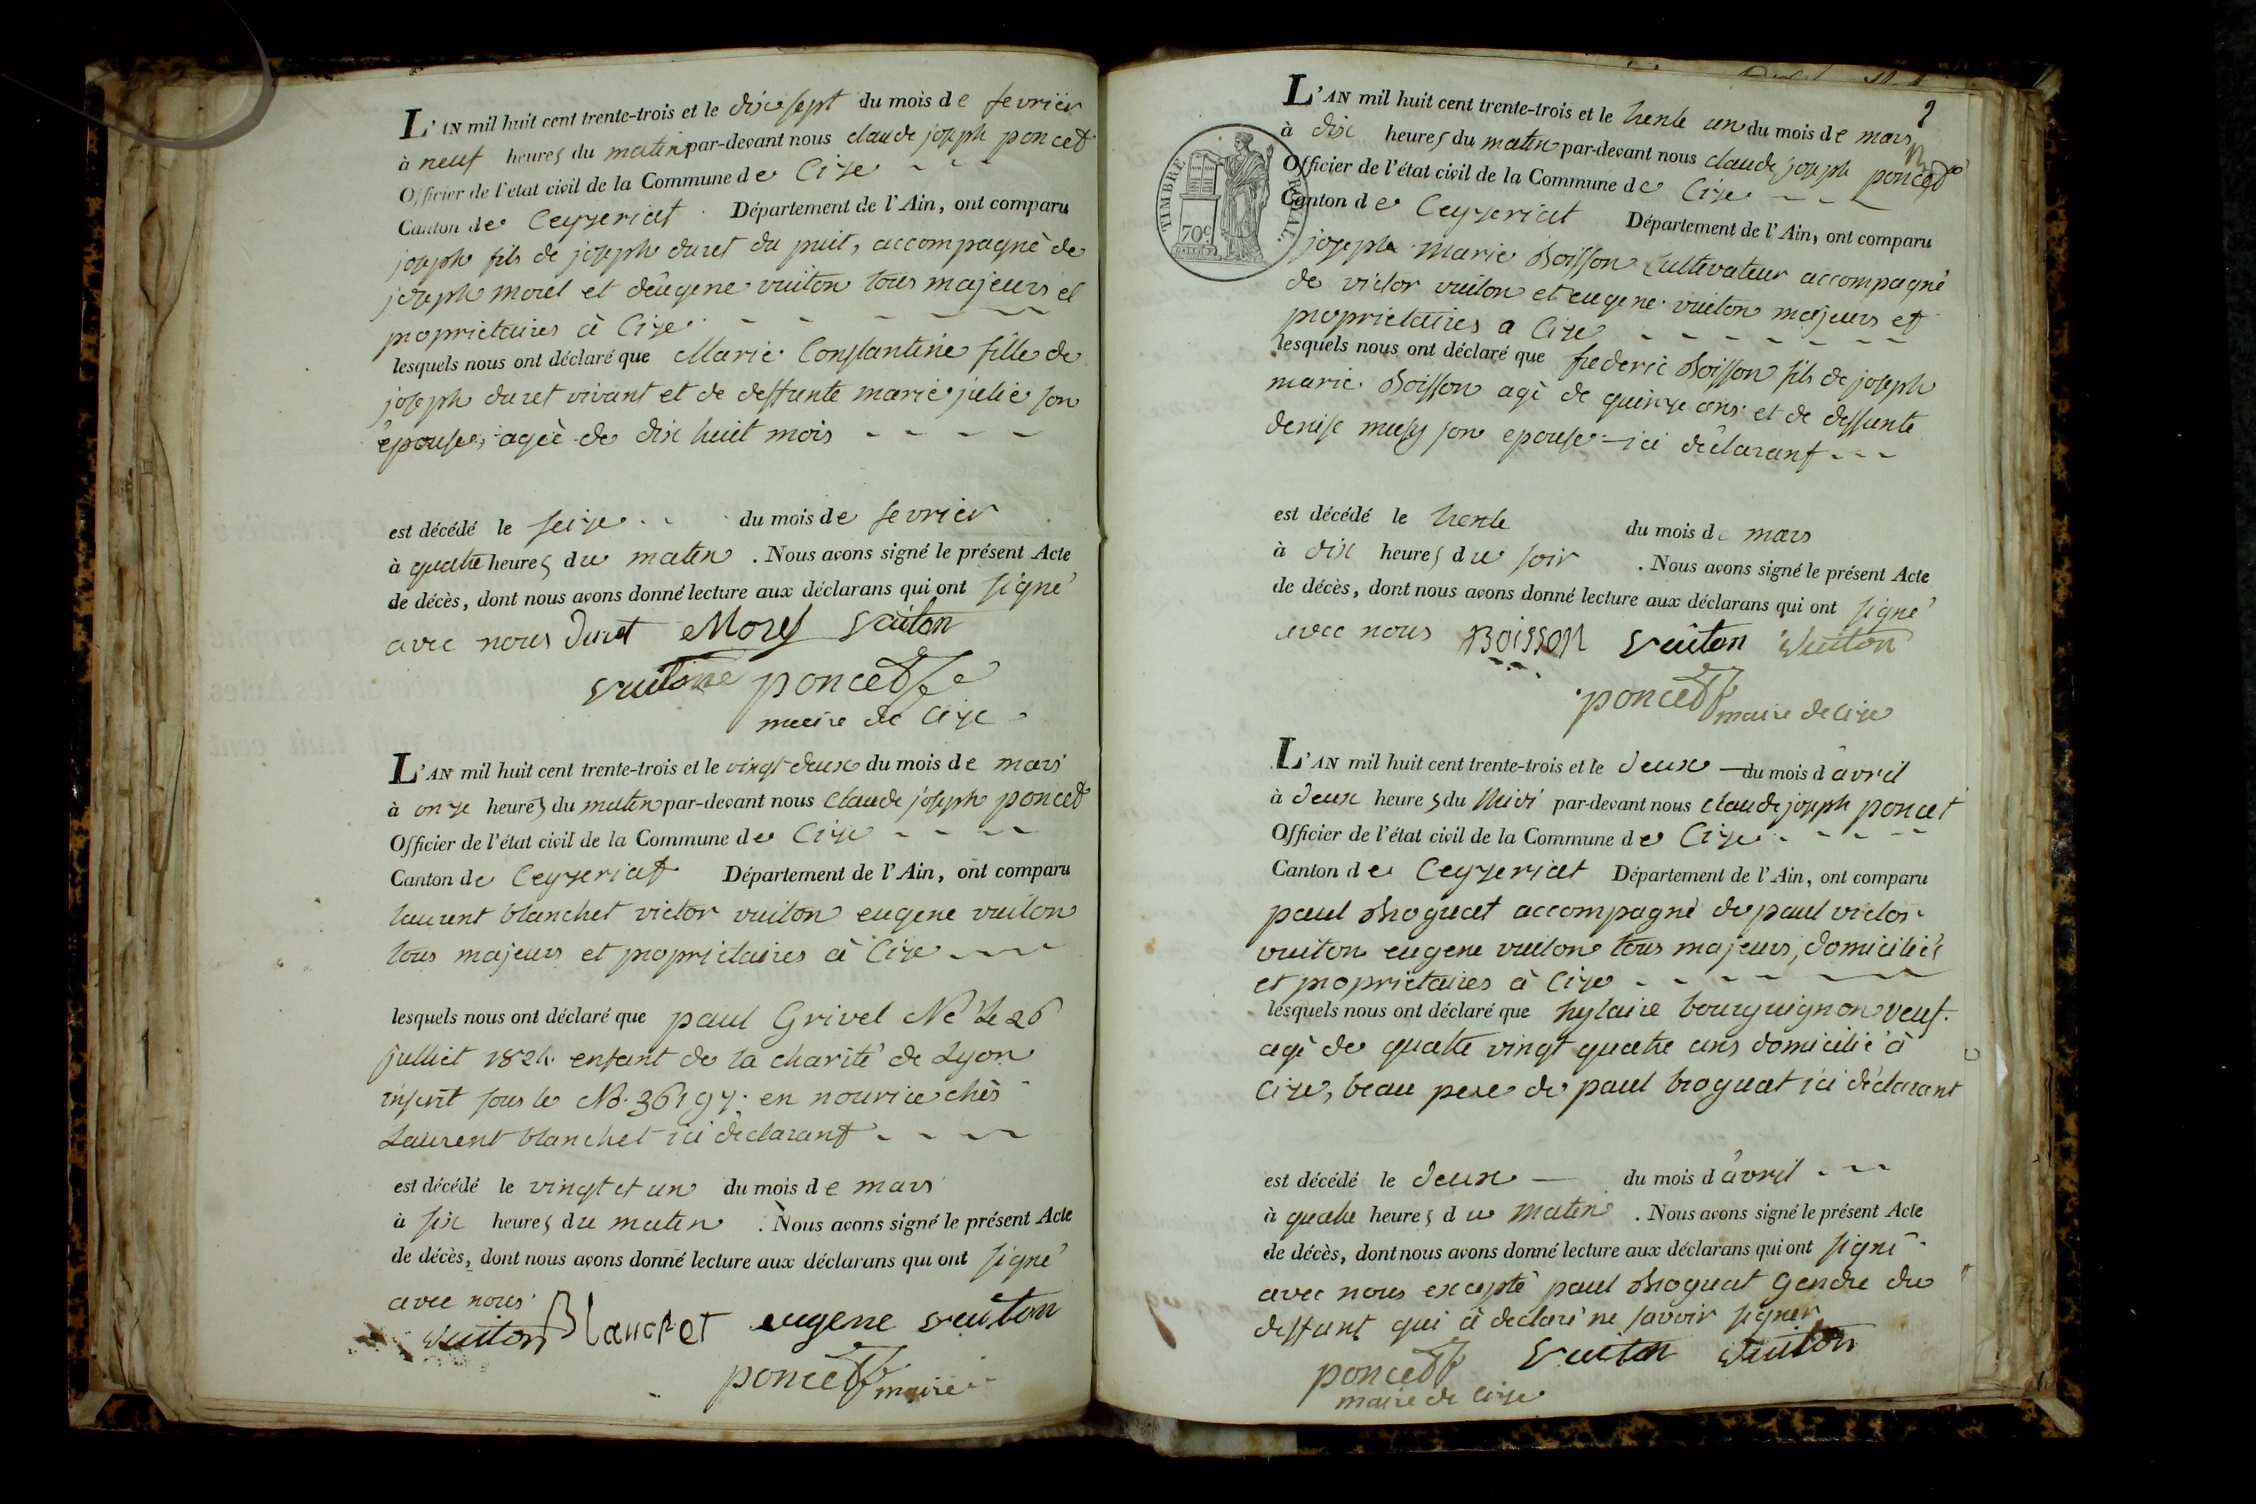 L'AN mil huit cent trente-trois et le dix sept du mois de fevrier
à neuf heures du matin par-devant nous claude joseph poncet
Officier de l'état civil de la Commune de Cize
Canton de Ceyzeriat Département de l'Ain, ont comparu
joseph fils de joseph duret du puit, accompagné de
joseph Morel et d'eugene vuiton tous majeurs et
proprietaires à Cize
lesquels nous ont déclaré que Marie Constantine fille de
joseph duret vivant et de deffunte marie julie son
épouse, agée de dix huit mois
est décédé le seize du mois de fevrier
à quatre heures du matin . Nous avons signé le présent Acte
de décès, dont nous avons donné lecture aux déclarans qui ont signé
avec nous Duret Morel Vuiton
Vuiton poncet
maire de Cize
L'AN mil huit cent trente-trois et le vingt deux du mois de mars
à onze heures du matin par-devant nous Claude joseph poncet
Officier de l'état civil de la Commune de Cize
Canton de Ceyzeriat Département de l'Ain, ont comparu
laurent blanchet victor vuiton eugene vuiton
tous majeurs et proprietaires à Cize
lesquels nous ont déclaré que paul Grivel Né le 26
julliet 1824 enfant de la charité de Lyon
inscrit sous le No. 36197 en nourice chès
Laurent blanchet ici déclarant
est décédé le vingt et un du mois de mars
à six heures du matin . Nous avons signé le présent Acte
de décès, dont nous avons donné lecture aux déclarans qui ont signé
avec nous
vuiton Blanchet eugene vuiton
poncet maire
2
L'AN mil huit cent trente-trois et le trente un du mois de mars
à dix heures du matin par-devant nous claude joseph poncet
Officier de l'état civil de la Commune de Cize
Canton de Ceyzeriat Département de l'Ain, ont comparu
TIMBRE ROYAL.
70c
joseph Marie Boisson Cultivateur accompagné
de victor vuiton et eugene vuiton majeurs et
proprietaires a Cize
lesquels nous ont déclaré que frederic Boisson fils de joseph
marie Boisson agé de quinze ans et de deffunte
denise musy son epouse ici déclarant
est décédé le trente du mois de mars
à dix heures du soir . Nous avons signé le présent Acte
de décès, dont nous avons donné lecture aux déclarans qui ont signé
avec nous Boisson Vuiton Vuiton
poncet maire de Cize
L'AN mil huit cent trente-trois et le deux du mois d'avril
à deux heures du Midi par-devant nous claude joseph poncet
Officier de l'état civil de la Commune de Cize
Canton de Ceyzeriat Département de l'Ain, ont comparu
paul Broguat accompagné de paul victor
vuiton eugene vuiton tous majeurs, domiciliés
et proprietaires à Cize
lesquels nous ont déclaré que hylaire bourguignon veuf
agé de quatre vingt quatre ans domicilié à
Cize, beau pere de paul broguat ici déclarant
est décédé le deux du mois d'avril
à quatre heures du Matin . Nous avons signé le présent Acte
de décès, dont nous avons donné lecture aux déclarans qui ont signé
avec nous excepté paul Broguat Gendre du
deffunt qui à declaré ne savoir signer
poncet Vuiton Vuiton
maire de Cize